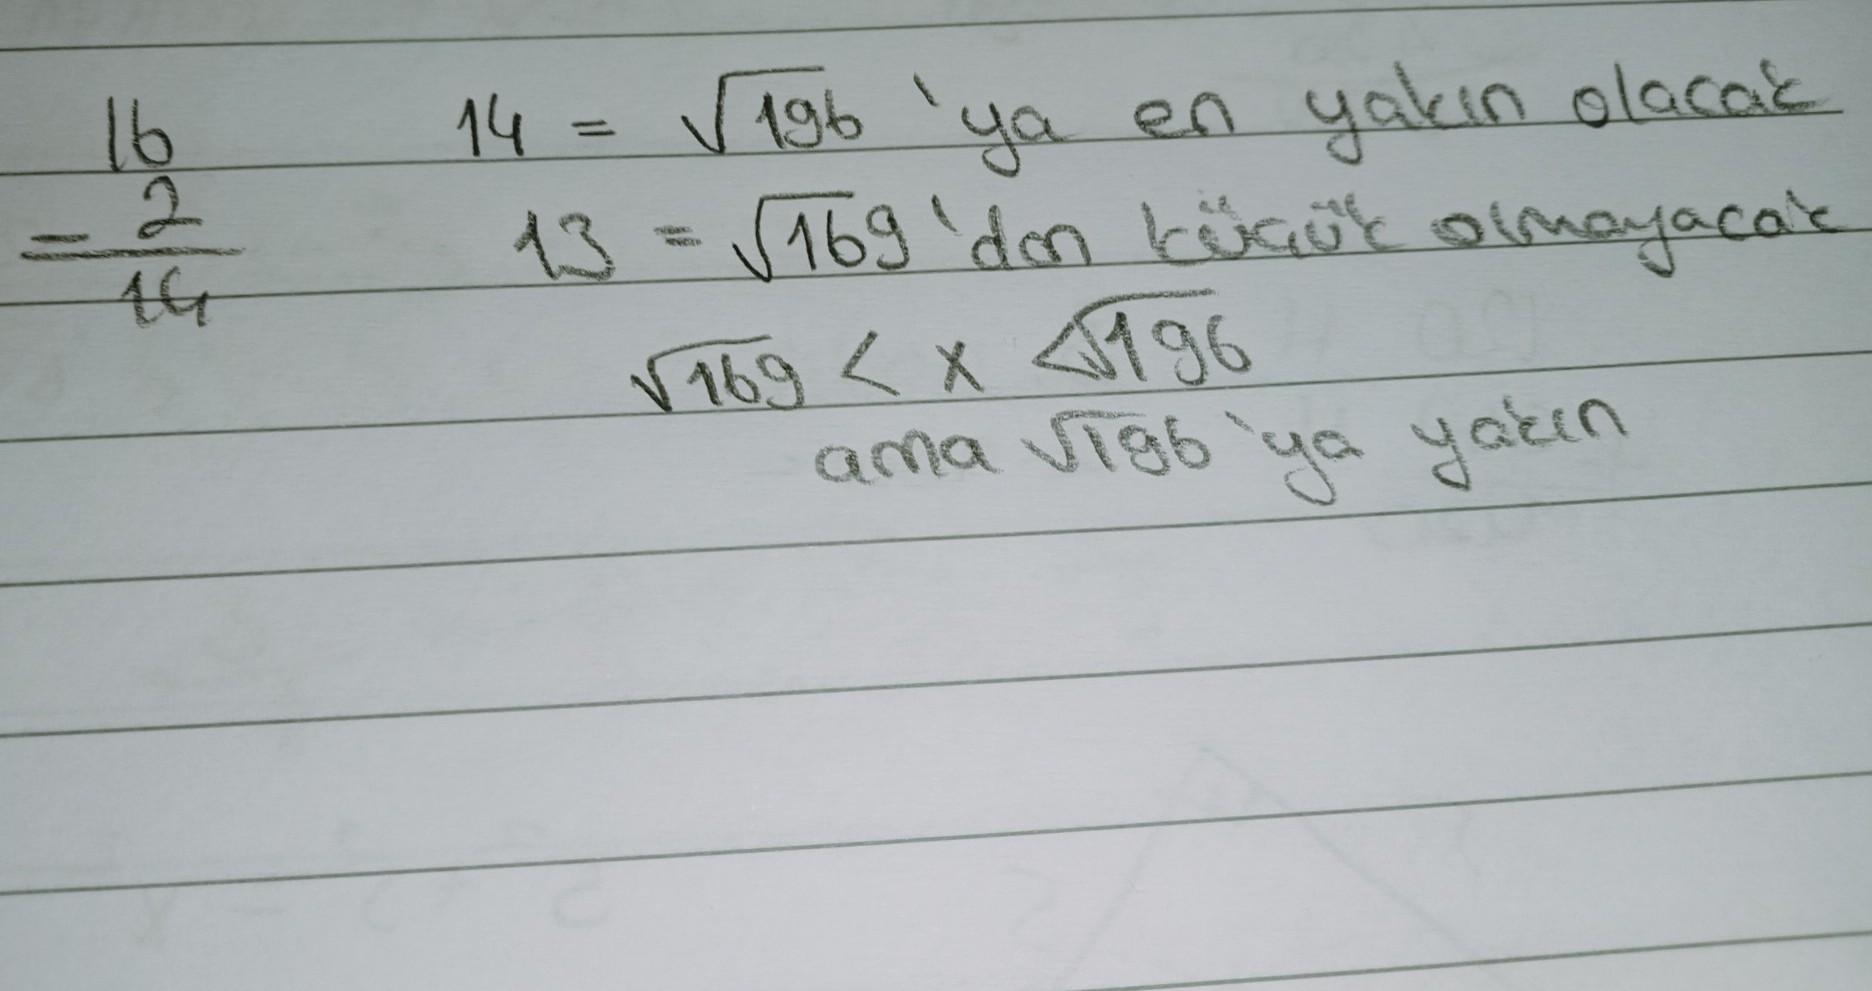 16
= 2
14
14 = √196 'ya en yakın olacak
13 = √169 'dan küçük olmayacak
√169 < x < √196
ama √196 'ya yakın